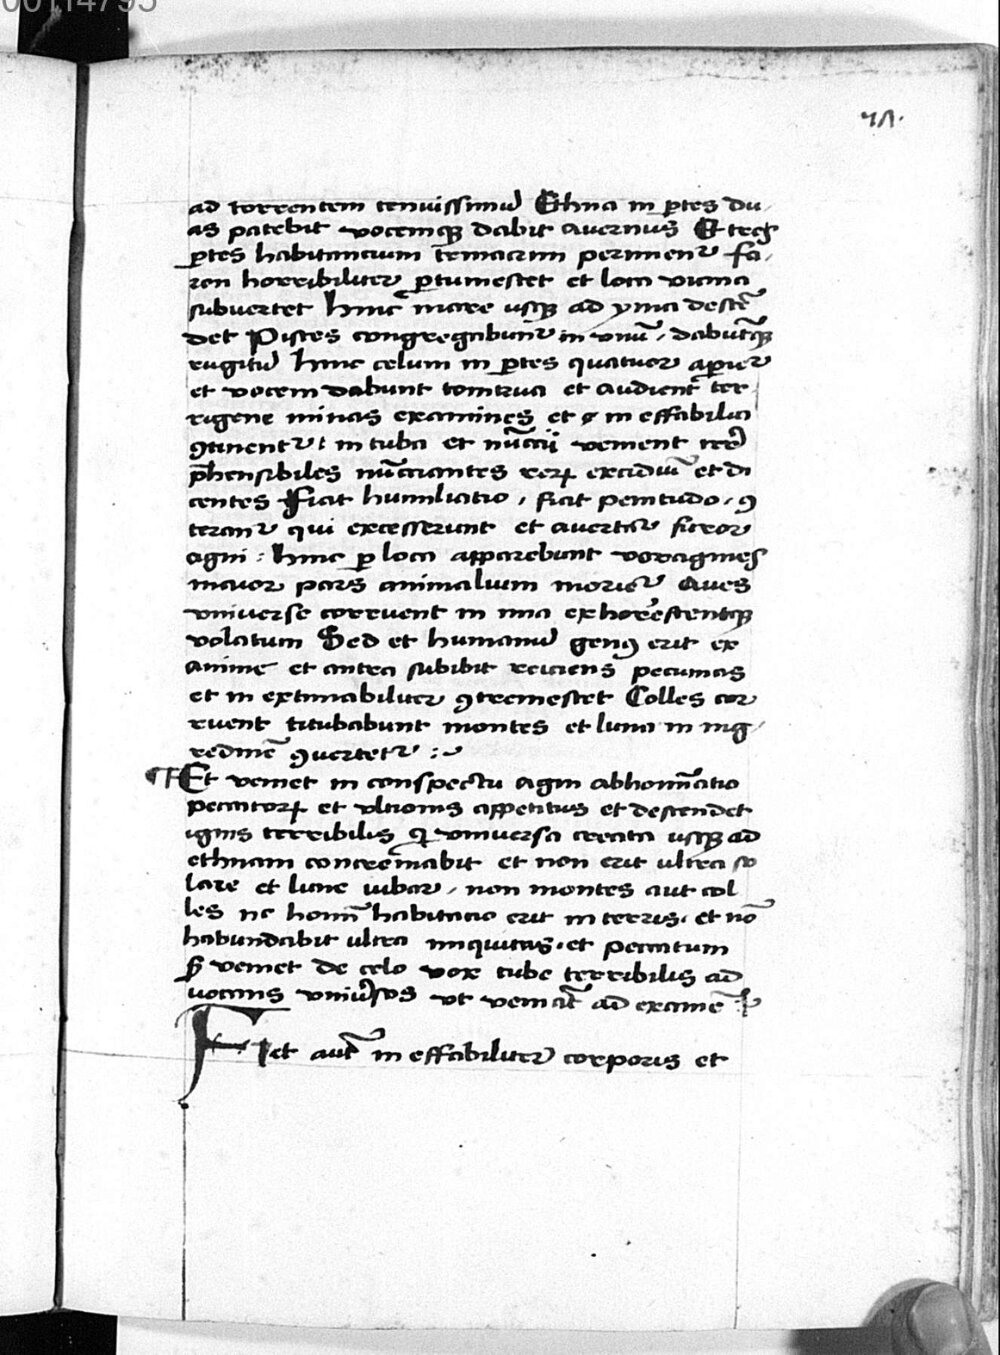 00114795
71.
ad torrentem tenuissimũ Ethna in ꝑtes du
as patebit vocemqꝫ dabit avernus Et
ꝑtes habitancium ternarum perimentᷣ fa
ron horribiliter ꝑtumescet et loca vicina
subvertet hinc mare usqꝫ ad yma descē
det Pisces congregabuntᷣ in vnũ dabũtqꝫ
rugitũ hinc celum in ꝑtes quatuor aꝑietᷣ
et vocem dabunt tonitrua et audient ter
rigene minas examines et in effabilia
ꝯtinentᷣ in tuba et nũccii venient
p̄hensibiles nũcciantes rerꝝ excidiũ et di
centes Fiat humiliatio, fiat penitudo, ꝯ
terantᷣ qui excesserunt et avertatᷣ furor
agni : hinc ꝑ loca apparebunt voragines
maior pars animalium morietᷣ Aves
vniverse corruent in ima exhorrescentqꝫ
volatum Sed et humanũ genꝰ erit ex
anime et antra subibit reiciens pecunias
et in extimabiliter ꝯtremescet Colles cor
ruent titubabunt montes et luna in nig
redinē ꝯvertetᷣ :~
¶ Et veniet in conspectu agni abhominatio
peccatorꝝ et vltionis appetitus et descendet
ignis terribilis qͥ vniversa creata usqꝫ ad
ethnam concremabit et non erit ultra so
lare et lune iubar, non montes aut col
les nc̄ hominũ habitatio erit in terris. et nō
habundabit ultra iniquitas. et peccatum
sꝫ veniet de celo vox tube terribilis ad
vocans vniũsos vt veniāt ad examē
Fiet autē in effabiliter corporis et